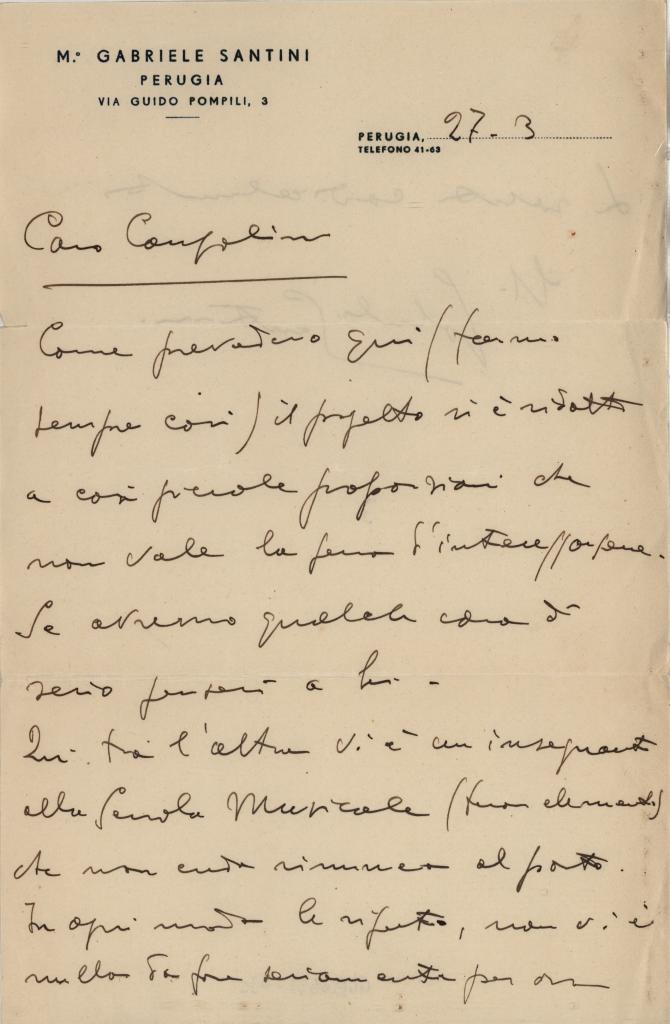 M.º GABRIELE SANTINI
PERUGIA
VIA GUIDO POMPILI, 3
PERUGIA, 27-3
TELEFONO 41-63
Caro
Come prevedevo qui (fanno
sempre così) il progetto si è ridotto
a così piccole proporzioni che
non vale la pena d'interessarsene.
Se avremo qualche cosa di
serio penserò a lei -
Qui tra l'altro vi è un insegnante
alla Scuola Musicale (buon elemento)
che non rinuncia al posto.
In ogni modo le ripeto, non vi è
nulla da fare seriamente per ora